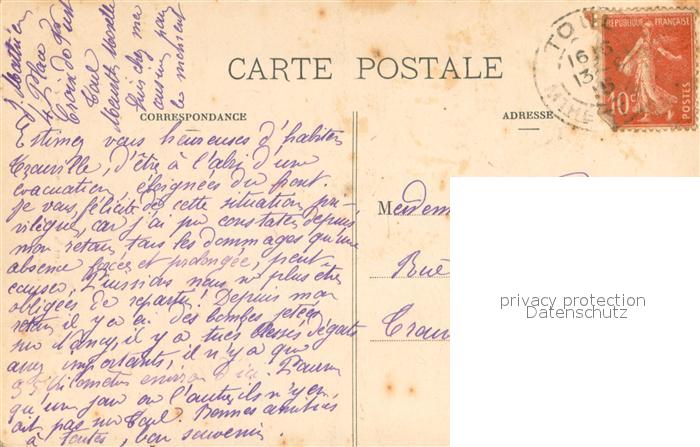 J. Mathieu
4 Plan
Croix de
Toul
Meurthe Moselle
suis chez ma
cousine pour
le moment
CARTE POSTALE
CORRESPONDANCE
ADRESSE
RÉPUBLIQUE FRANÇAISE
10c
POSTES
TOUL
16
13
MTHE
Estimez vous heureuses d'habiter
Trouville, d'être à l'abri d'une
évacuation, éloignées du front.
Je vous félicite de cette situation pri-
vilégiée, car j'ai pu constater depuis
mon retour tous les dommages qu'une
absence forcée et prolongée, peut
causer. Puissions nous n' plus être
obligées de repartir! Depuis mon
retour il y a eu des bombes jetées
sur Nancy, il y a tués blessés dégats
assez importants, il n'y a que
25 kilomètres environ d'ici. Pourvu
qu'un jour ou l'autre ils n'y en
ait pas sur Toul. Bonnes amitiés
à toutes, bon souvenir.
Mesdem
Rue
Trou
privacy protection
Datenschutz